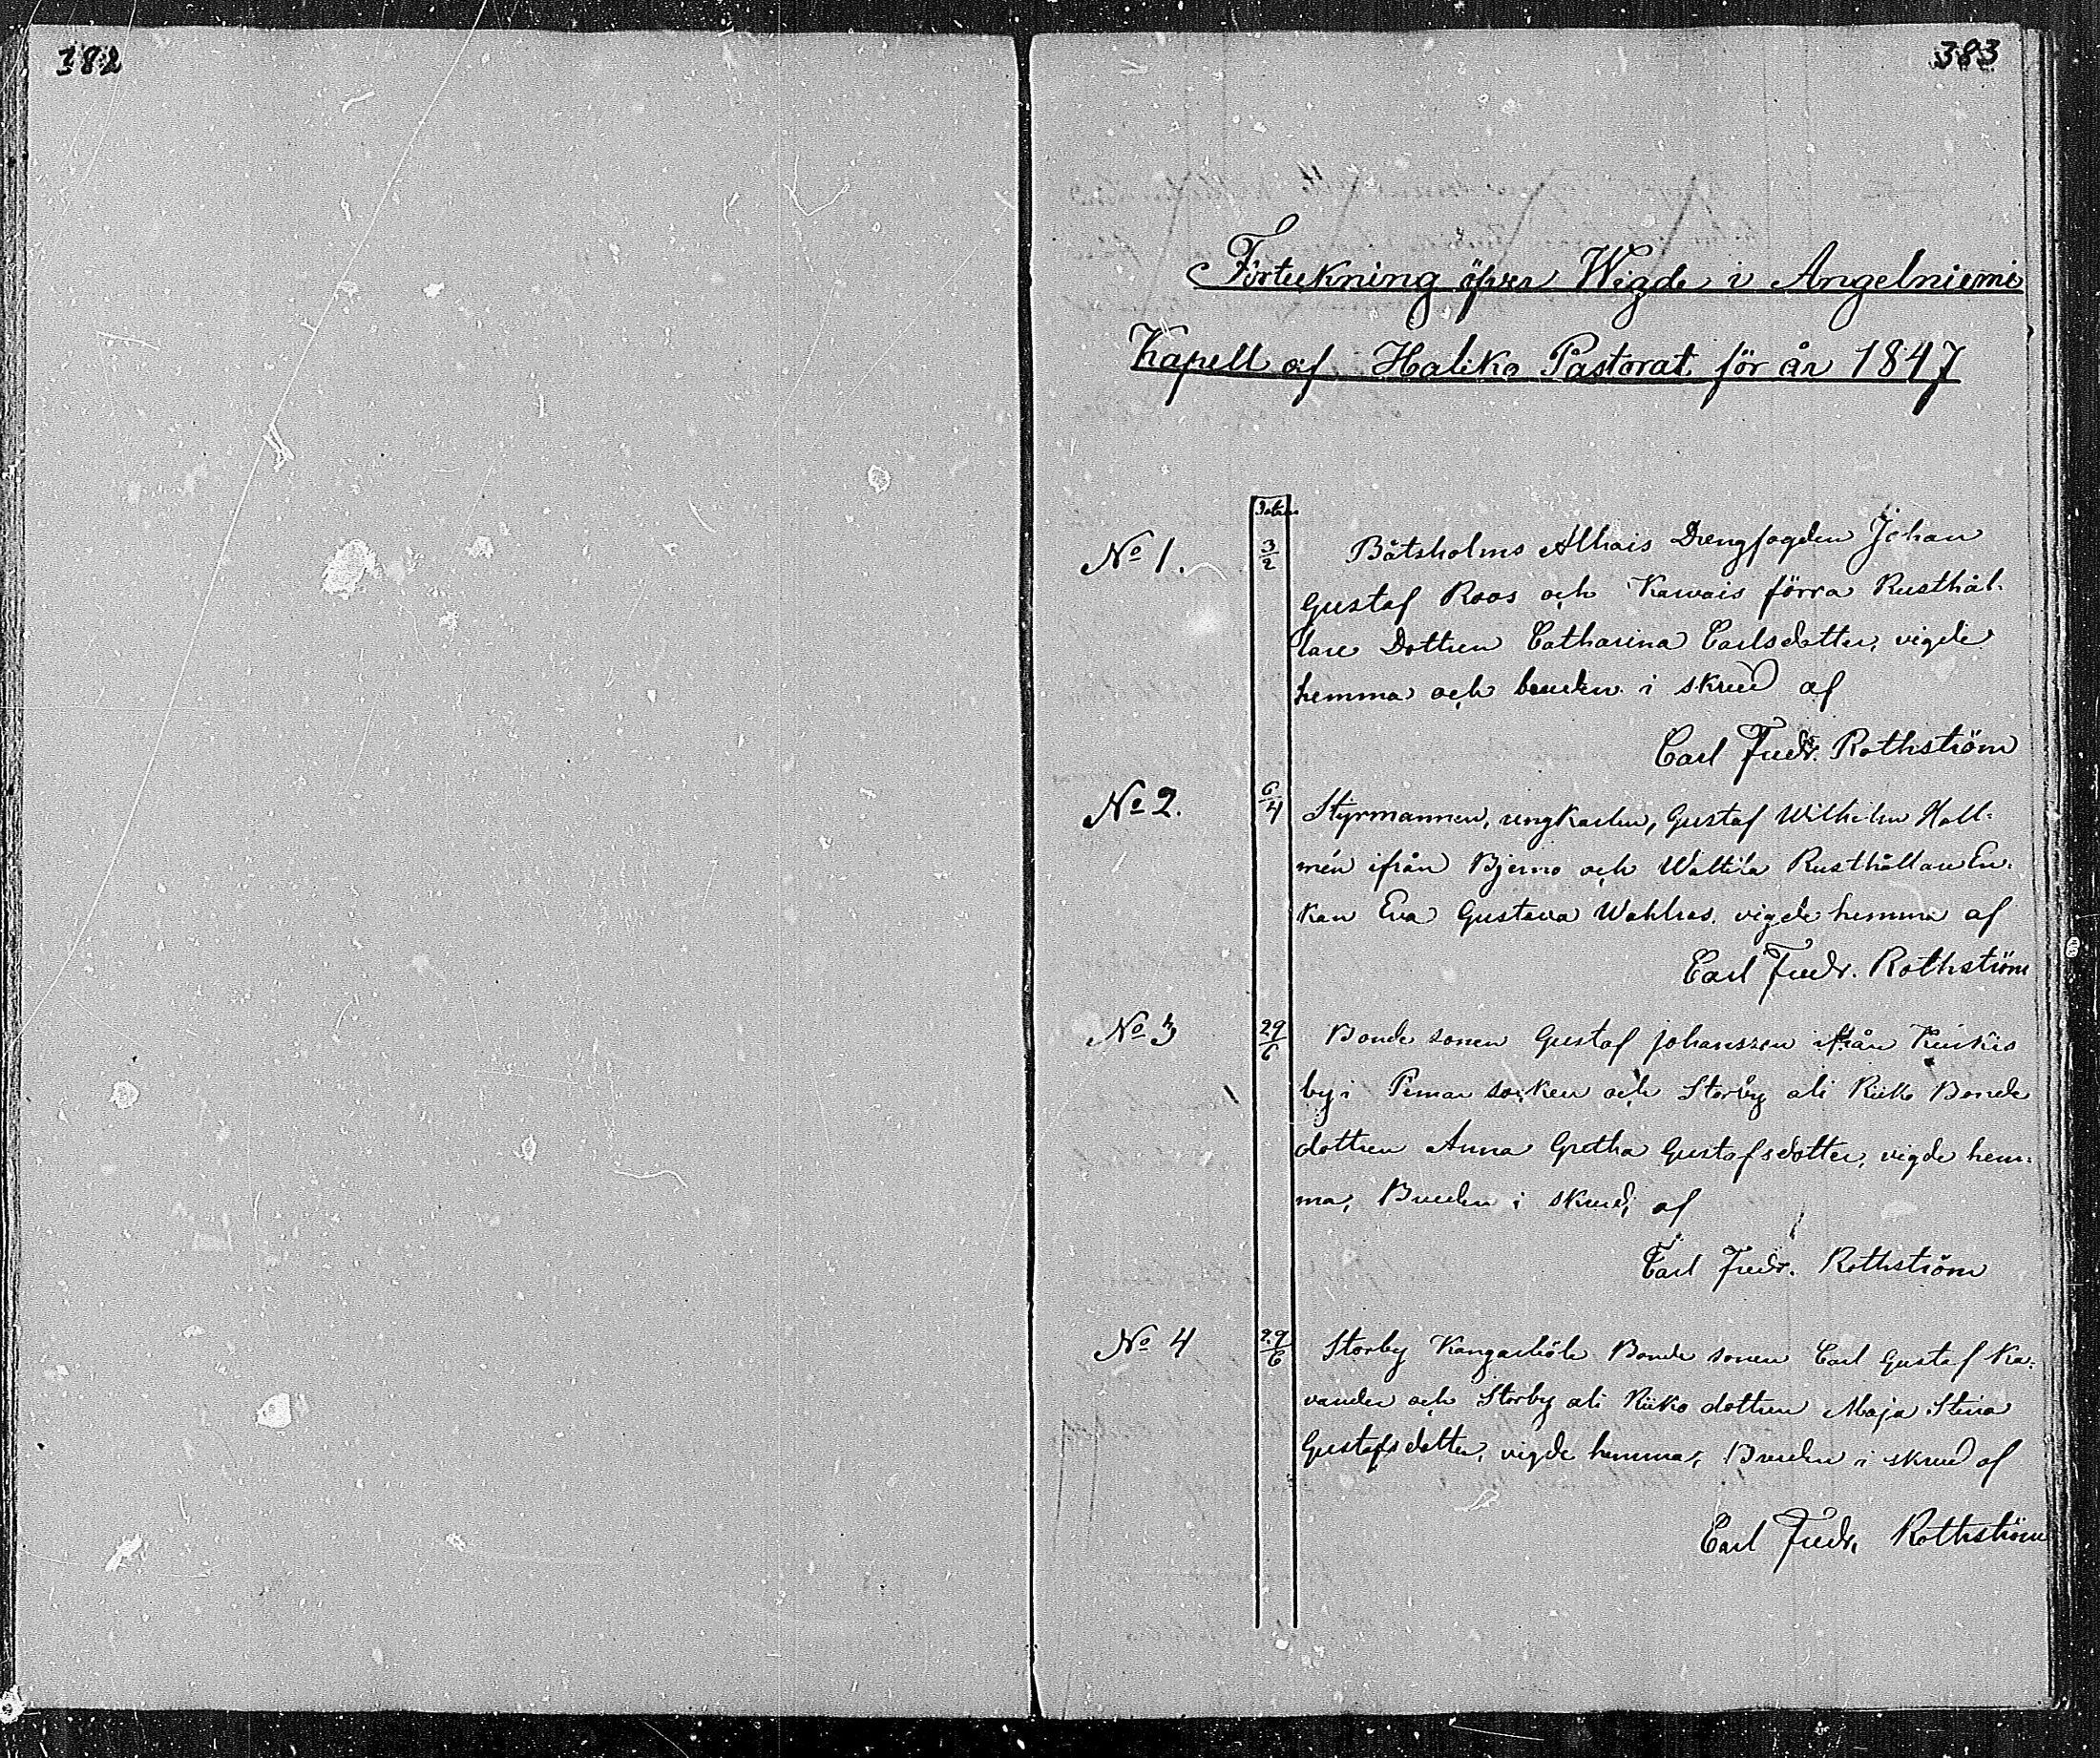 382
383
Förteckning öfver Wigde i Angelniemi
Kapell af Haliko Pastorat för år 1847
Datum
No 1.
3/2
Båtsholms Alhais Drengfogden Johan
Gustaf Roos och Karvais förra Rusthål-
lare Dottren Catharina Carlsdotter, vigde
hemma och bruden i skrud af
Carl Fredr. Rothström
No 2.
6/4
Styrmannen, ungkarlen, Gustaf Wilhelm Hall-
mén ifrån Bjerno och Waltila Rusthållare En-
kan Eva Gustava Wahlros, vigde hemma af
Carl Fredr. Rothström
No 3
29/6
Bonde sonen Gustaf Johansson ifrån
by i Pemar socken och Storby ali Riiko Bonde
dottren Anna Gretha Gustafsdotter, vigde hem-
ma, Bruden i skrud, af
Carl Fredr. Rothström
No 4
29/6
Storby Bonde sonen Carl Gustaf Ka-
vander och Storby ali Riiko dottren Maja Stina
Gustafsdotter, vigde hemma, Bruden i skrud af
Carl Fredr. Rothström